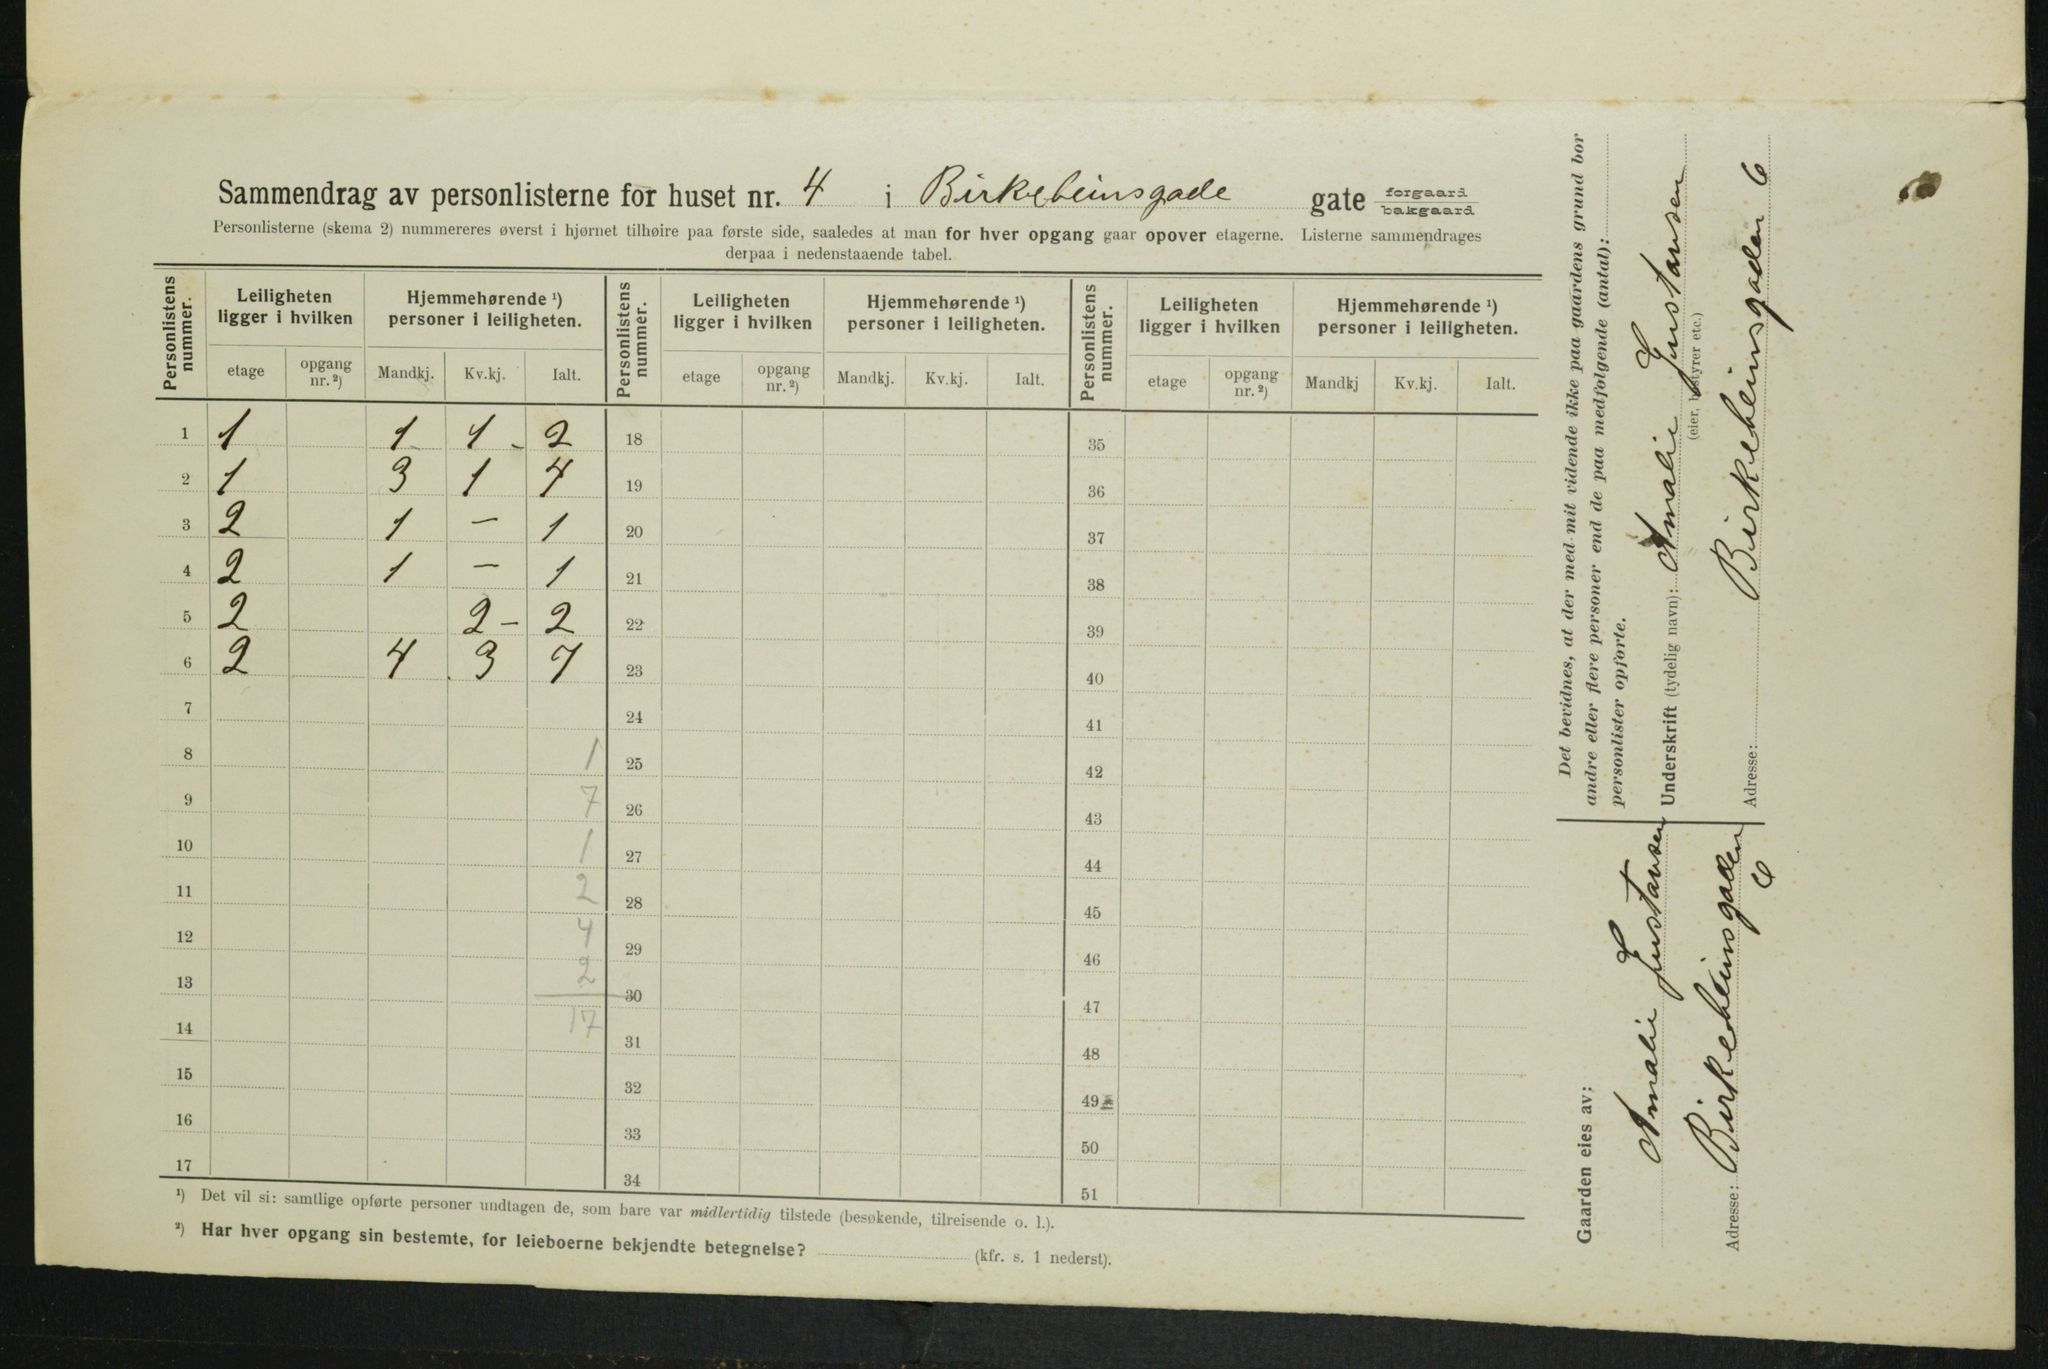 Sammendrag av personlisterne for huset nr. 4 i Birkebeinsgade gate forgaard bakgaard
Personlisterne (skema 2) nummereres øverst i hjørnet tilhøire paa første side, saaledes at man for hver opgang gaar opover etagerne. Listerne sammendrages
derpaa i nedenstaaende tabel.
Personlistens nummer. Leiligheten ligger i hvilken Hjemmehørende ¹) personer i leiligheten. Personlistens nummer. Leiligheten ligger i hvilken Hjemmehørende ¹) personer i leiligheten. Personlistens nummer. Leiligheten ligger i hvilken Hjemmehørende ¹) personer i leiligheten.
etage opgang nr. ²) Mandkj. Kv.kj. Ialt. etage opgang nr. ²) Mandkj. Kv.kj. Ialt. etage opgang nr. ²) Mandkj Kv.kj. Ialt.
1 1 1 1 - 2 18 35
2 1 3 1 4 19 36
3 2 1 — 1 20 37
4 2 1 — 1 21 38
5 2 2 - 2 22 39
6 2 4 3 7 23 40
7 24 41
8 1 25 42
9 7 26 43
10 1 27 44
11 2 28 45
12 4 29 46
13 2 30 47
14 17 31 48
15 32 49
16 33 50
17 34 51
¹) Det vil si: samtlige opførte personer undtagen de, som bare var midlertidig tilstede (besøkende, tilreisende o. l.).
²) Har hver opgang sin bestemte, for leieboerne bekjendte betegnelse? (kfr. s. 1 nederst).
Det bevidnes, at der med mit vidende ikke paa gaardens grund bor
andre eller flere personer end de paa medfølgende (antal):
personlister opførte.
Underskrift (tydelig navn): Amalie Gustavsen
(eier, bestyrer etc.)
Adresse: Birkebeinsgaden 6
Gaarden eies av:
Amalie Gustavsen
Adresse: Birkebeinsgaden
6